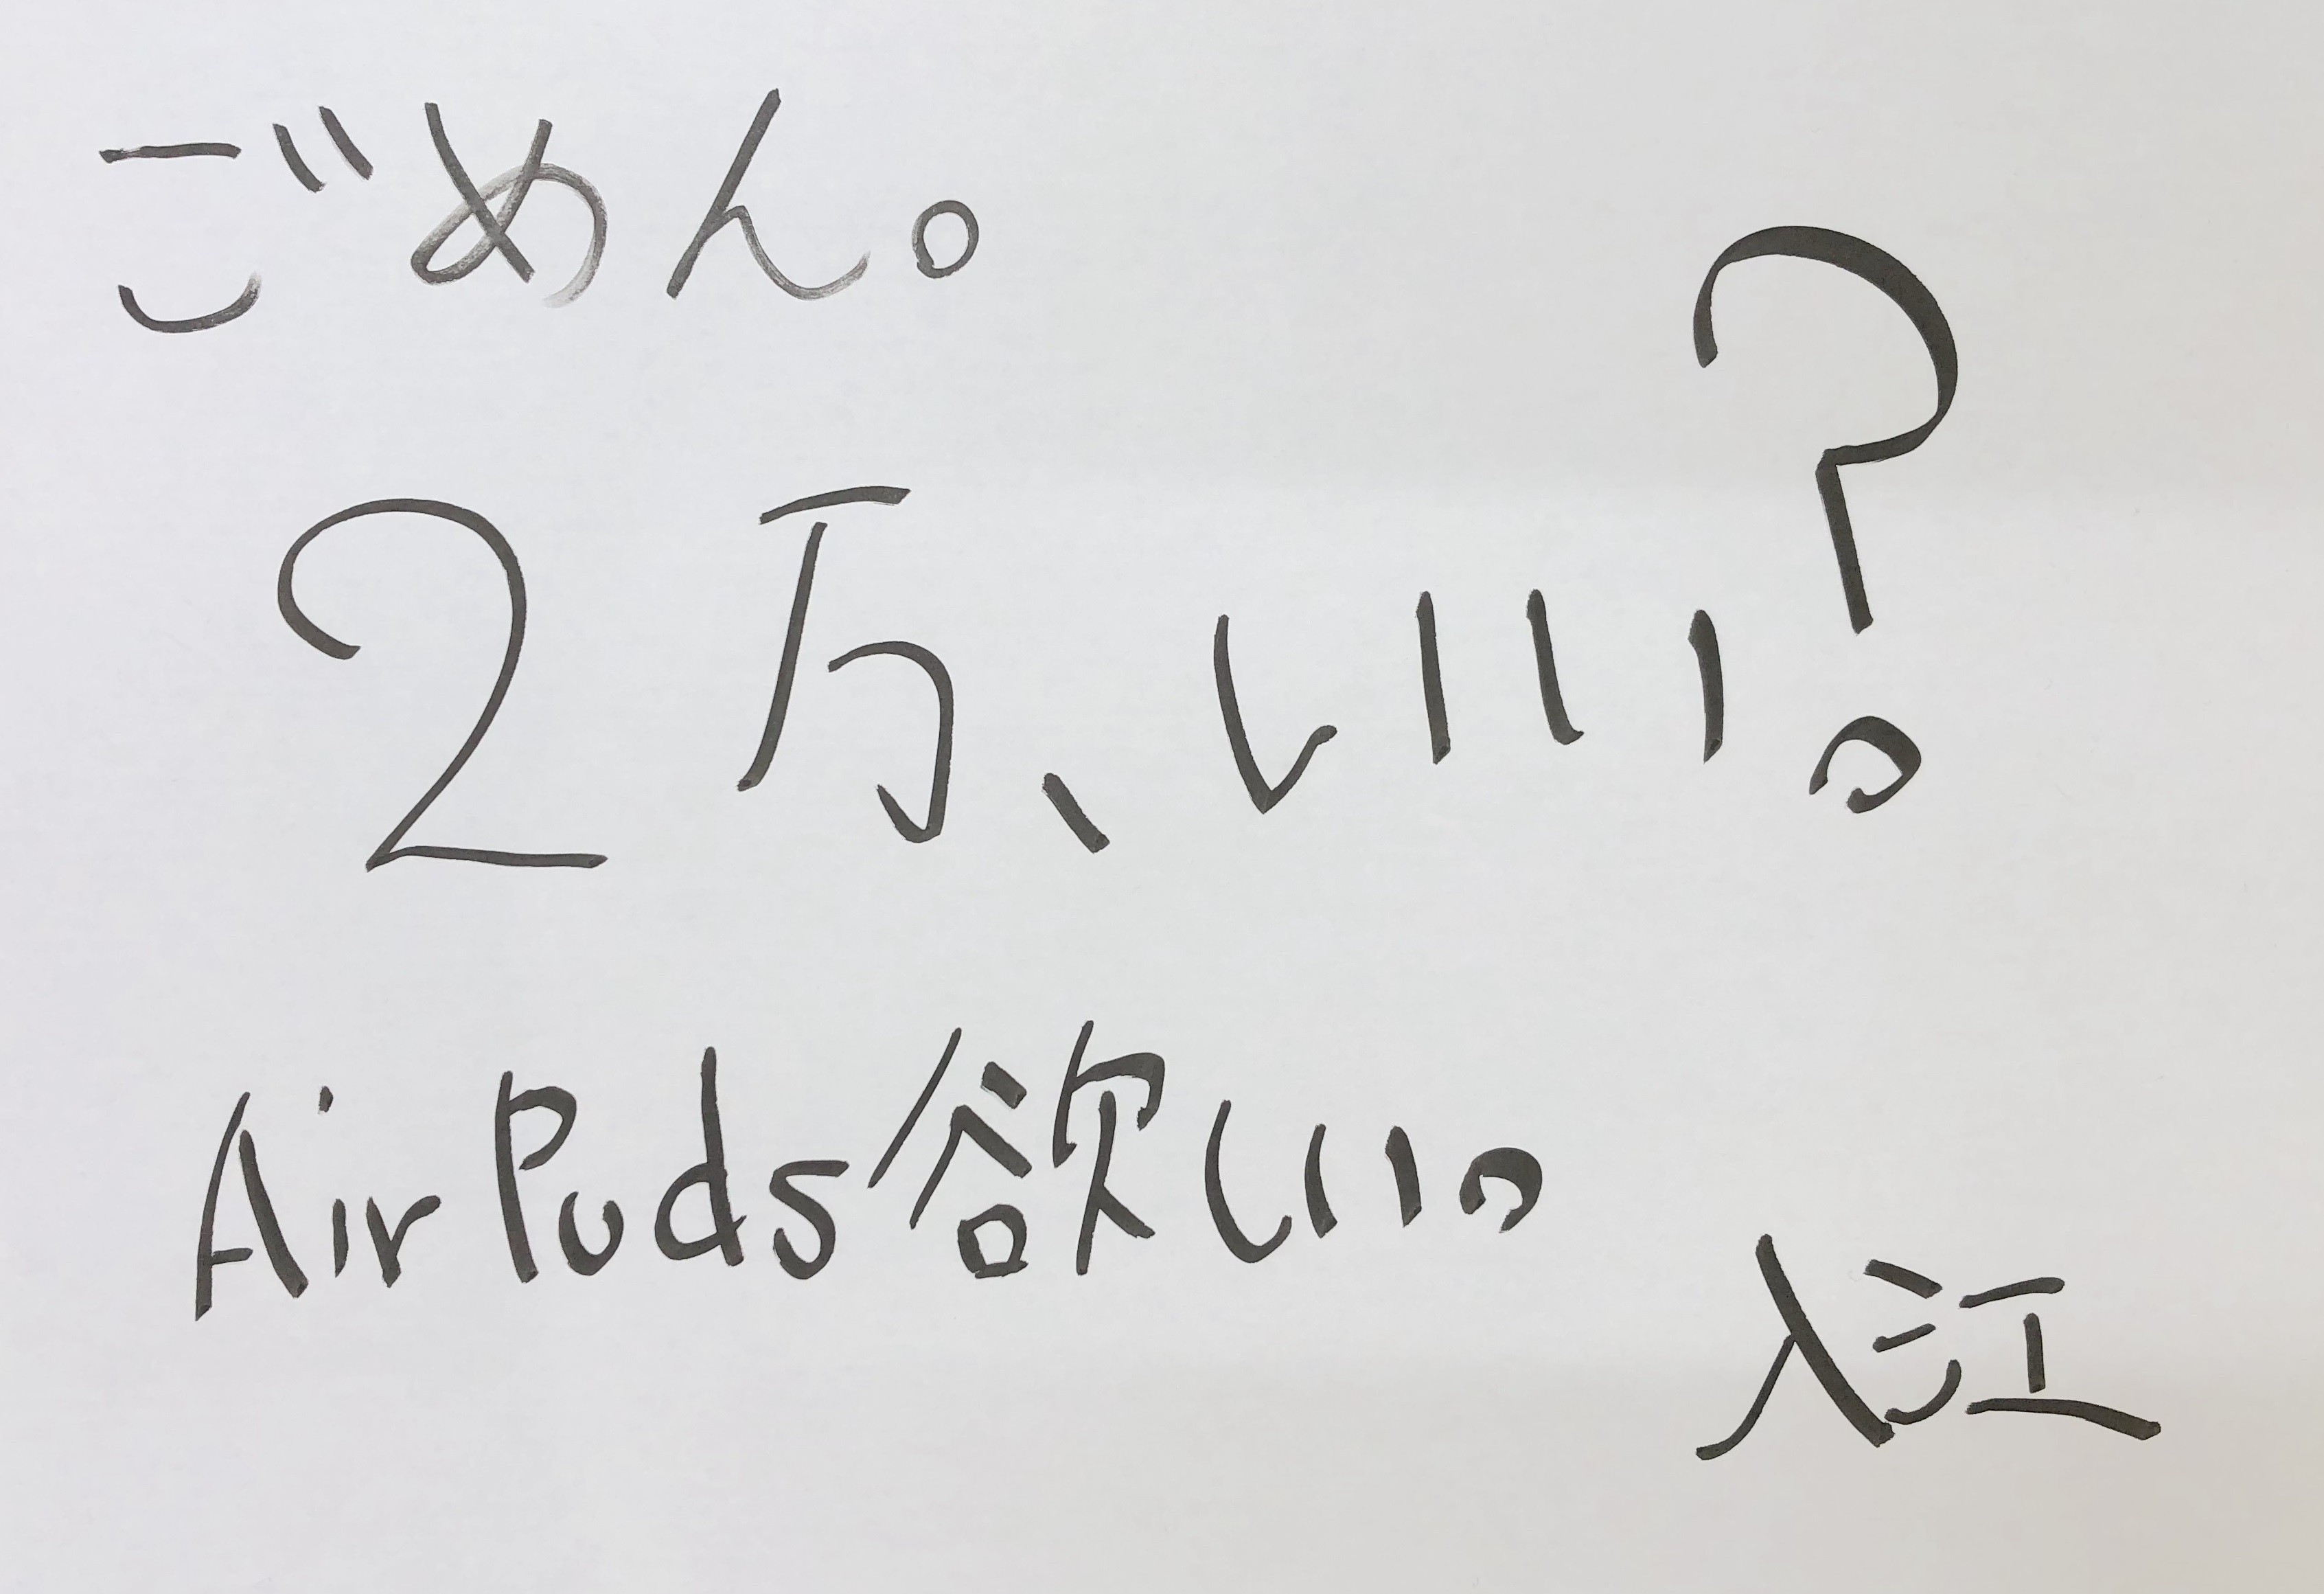 ごめん。
2万、いい?
AirPods欲しい。
入江